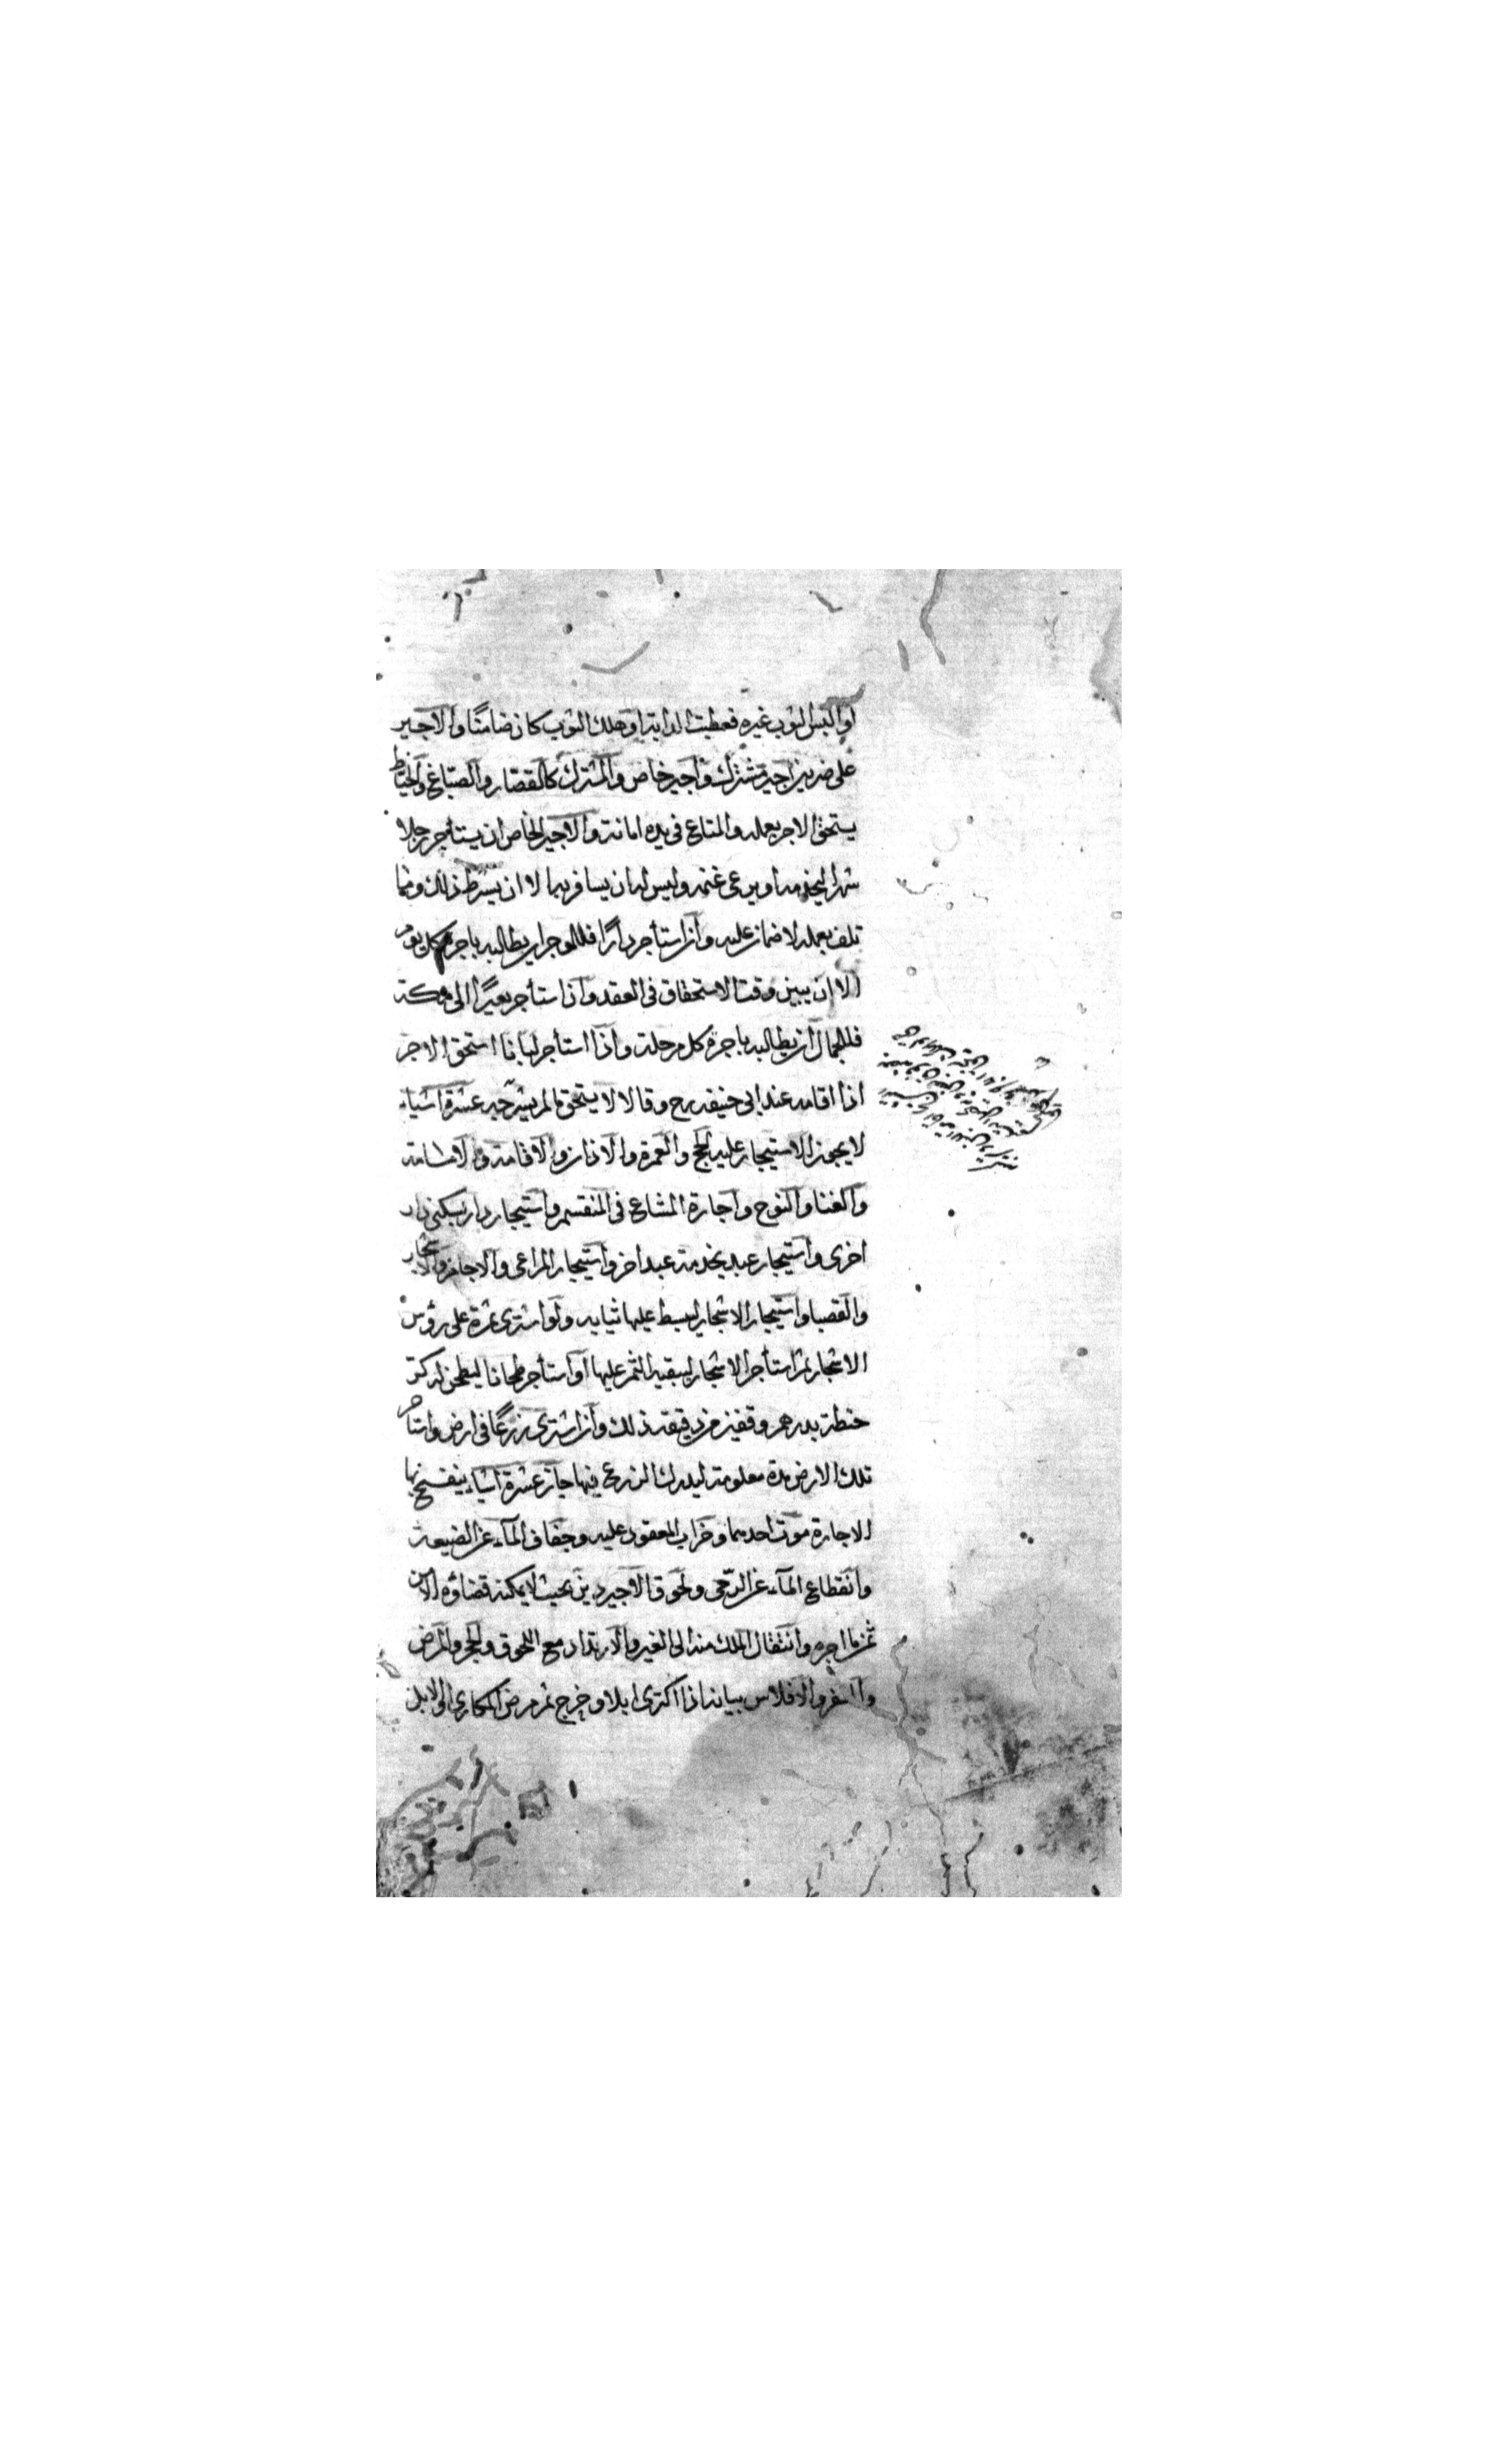 او البس الثوب غيره فعطبت الدابة او هلك الثوب كان ضامنًا والاجير
على ضربين اجير مشترك واجير خاص والمشترك كالقصار والصباغ والخياط
يستحق الاجر بعمله والمتاع فى يده امانة والاجير الخاص ان يستأجر رجلا
شهرا ليخدمه او يرعى غنمه وليس له ان يسافر بهما الا ان يشترط ذلك وفيما
تلف بعمله لا ضمان عليه وان استأجر دارًا فللموجر ان يطالبه باجرة كل يوم
الا ان يبين وقت الاستحقاق فى العقد واذا استأجر بعيرًا الى مكة
فللجمال ان يطالبه باجرة كل مرحلة واذا استأجر لبانا استحق الاجر
اذا اقامه عند ابى حنيفه رح وقالا لا يستحق مالم يشرحه عشرة اشياء
لا يجوز الاستيجار عليه الحج والعمرة والاذان والاقامة والامامة
والغنا والنوح واجارة المشاع فى المنقسم واستيجار دار بسكنى دار
اخرى واستيجار عبد بخدمة عبد اخر واستيجار المراعى والاجام والابحار
والقصبا واستيجار الاشجار ليبسط عليها ثيابه ولو اشترى ثمرة على رؤس
الاشجار ثم استأجر الاشجار ليبقيه الثمر عليها او استأجر طحانا ليطحن له كر
حنطة بدرهم وقفيز من دقيقه ذلك وان اشترى زرعًا فى ارض واستاجر
تلك الارض مدة معلومة ليدرك الزرع فيها جاز عشرة اشياء ينفسخ بها
الاجارة موت احدهما وخراب المعقود عليه وجفاف المآء عن الضيعة
وانقطاع المآء عن الرحى ولحوق الاجير دين بحيث لا يمكنه قضاؤه الا من
ثمن ما اجره وانتقال الملك منه الى الغير والارتداد مع اللحوق والحجر والمرض
والسفر والافلاس بيانه اذا اكترى ابلا وخرج ثم مرض المكارى او الابل